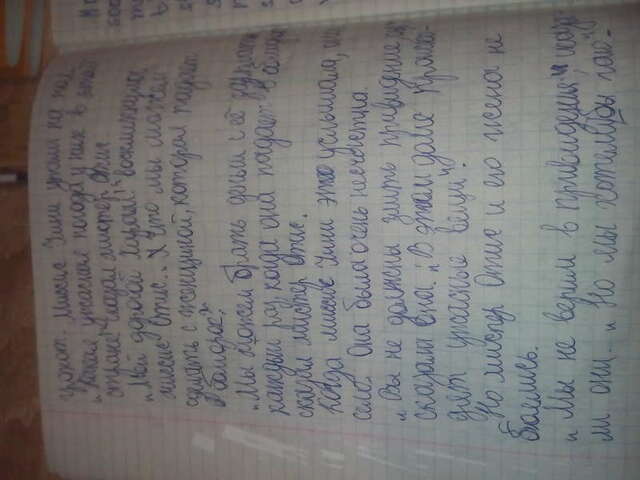 грохот. Миссис Умни упала на пол.
„Какая ужасная погода у них в этой
стране!" сказал мистер Отис.
„Мой дорогой Харам!" воскликнула
миссис Отис. „Что мы можем
сделать с женщиной, которая падает
в обморок?"
„Мы можем брать деньги с её зарплаты
каждый раз, когда она падает в обморок"
сказал мистер Отис.
Когда миссис Умни это услышала, она
села. Она была очень несчастна.
„Вы не должны злить привидение"
сказала она. „В этом доме происхо-
дят ужасные вещи".
Но мистер Отис и его жена не
боялись.
„Мы не верим в привидения", сказа-
ли они. „Но мы хотели бы чаю".